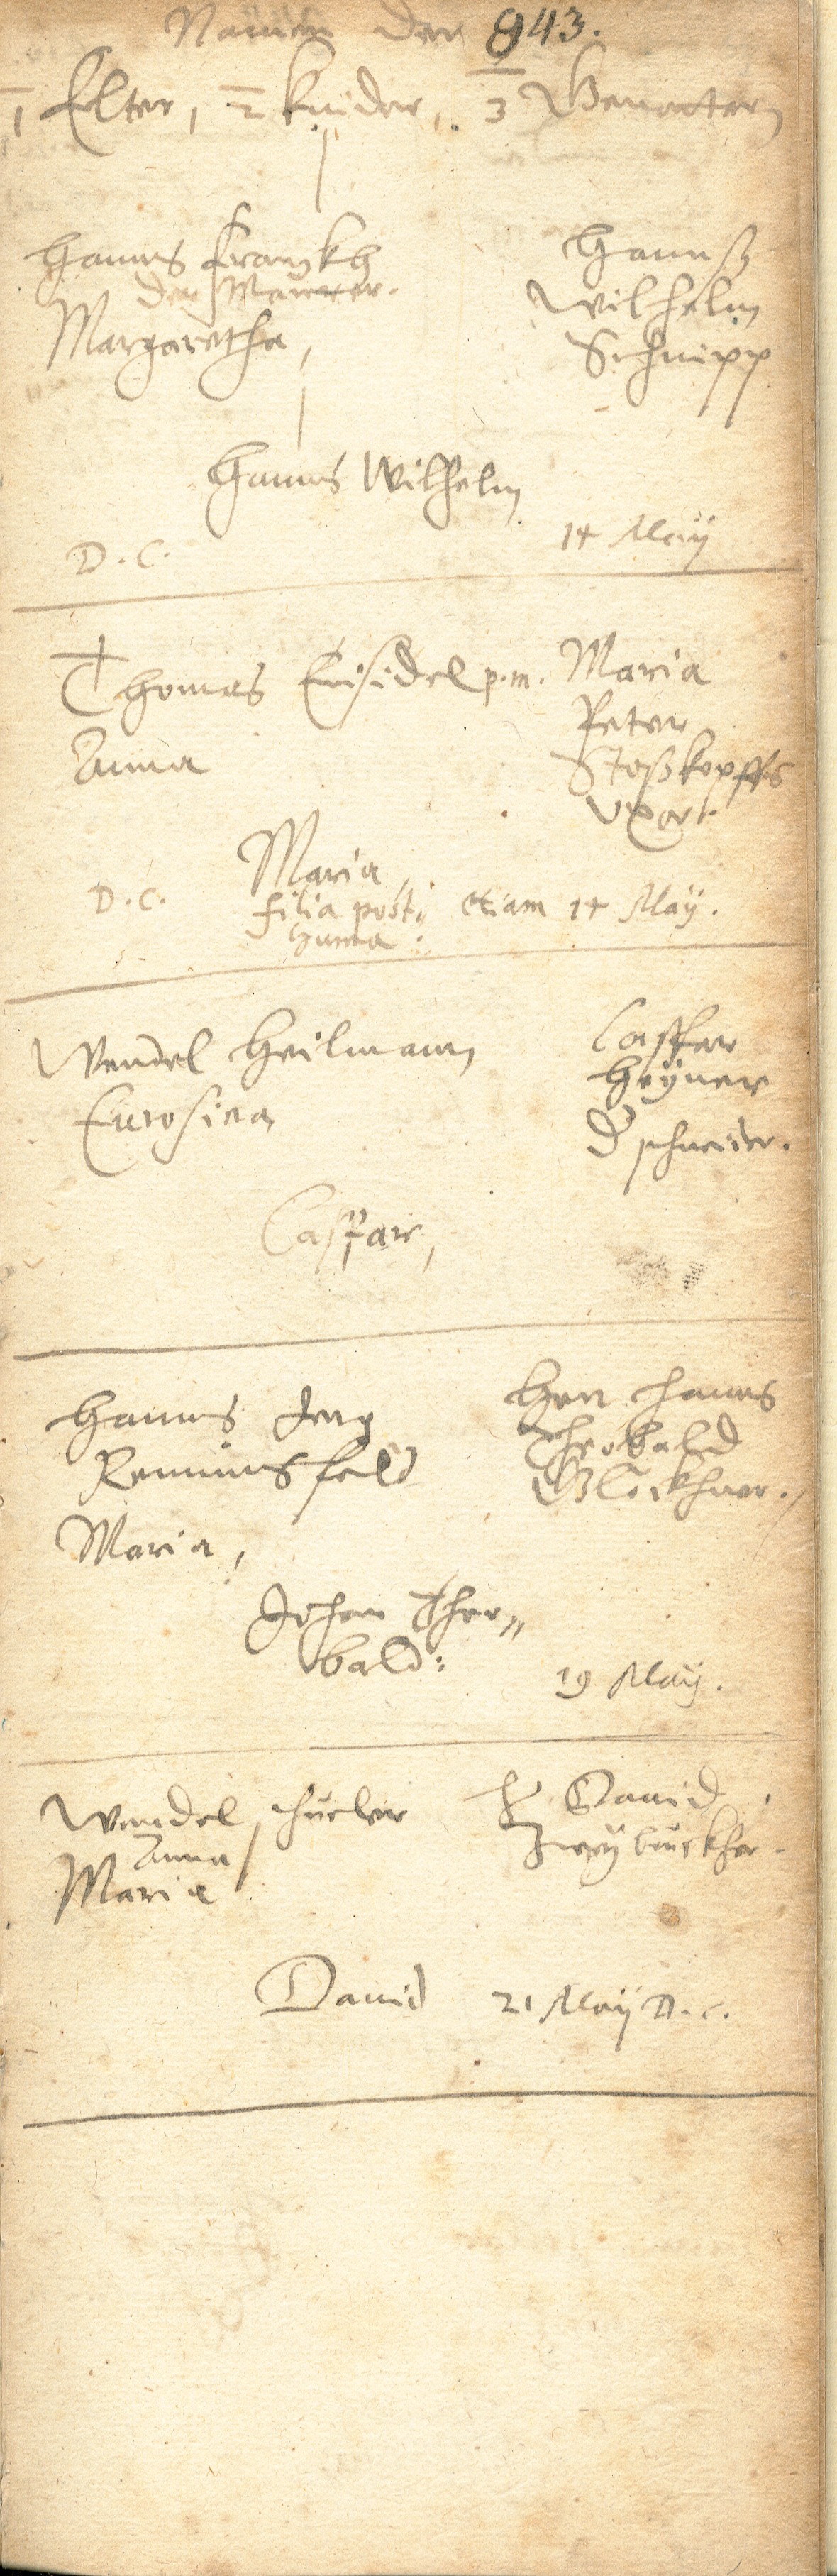 Namen der 843.
1 Elter, 2 Kinder, 3 Gevatter
Hanns Franckh
der Maurer.
Margaretha,
Hannß
Wilhelm
Schnipp
Hanns Wilhelm
D. C. 14 Maÿ
Thomas p. m.
Anna
Maria
Peter
Stoßkopffs
Uxor.
Maria,
D. C. filia post„ etiam 14 Maÿ.
huma.
Wendel Heilmann
Eurosina
Casper
Heÿner
d schneider.
Caspar,
Hanns Jerg
Remmesfeld
Maria,
Herr Hanns
Theobald
Glöckhner.
Johan Theo„
bald:
19 Maÿ.
Wendel
Anna
Maria
H David
Zweÿbruckher.
David 21 Maÿ D. C.